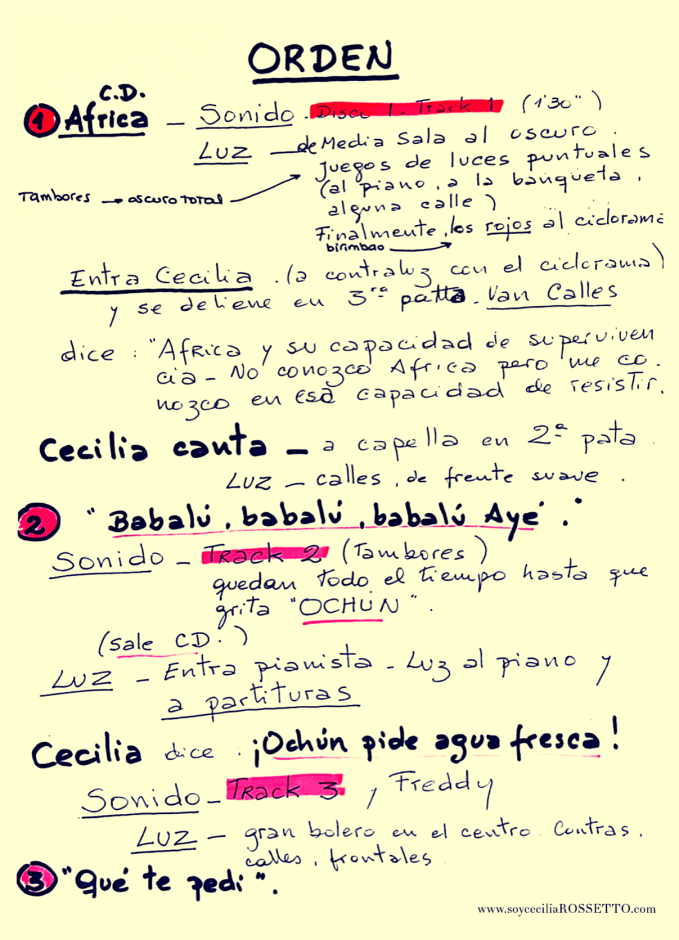 ORDEN
C.D.
1 Africa - Sonido. Disco 1. Track 1 (1'30")
Luz - de Media Sala al oscuro.
Juegos de luces puntuales
Tambores → oscuro total → (al piano, a la banqueta,
alguna calle)
Finalmente, los rojos al ciclorama
birimbao →
Entra Cecilia. (a contraluz con el ciclorama)
y se detiene en 3ra patta. Van Calles
dice: "Africa y su capacidad de superviven
cia - No conozco Africa pero me co-
nozco en esa capacidad de resistir.
Cecilia canta - a capella en 2a pata.
Luz - calles, de frente suave.
2 "Babalú, babalú, babalú Ayé."
Sonido - Track 2 (Tambores)
quedan todo el tiempo hasta que
grita "OCHÚN".
(Sale CD.)
Luz - Entra pianista - Luz al piano y
a partituras
Cecilia dice. ¡Ochún pide agua fresca!
Sonido - Track 3 y Freddy
Luz - gran bolero en el centro. Contras,
calles, frontales
3 "Qué te pedí".
www.soyceciliaROSSETTO.com